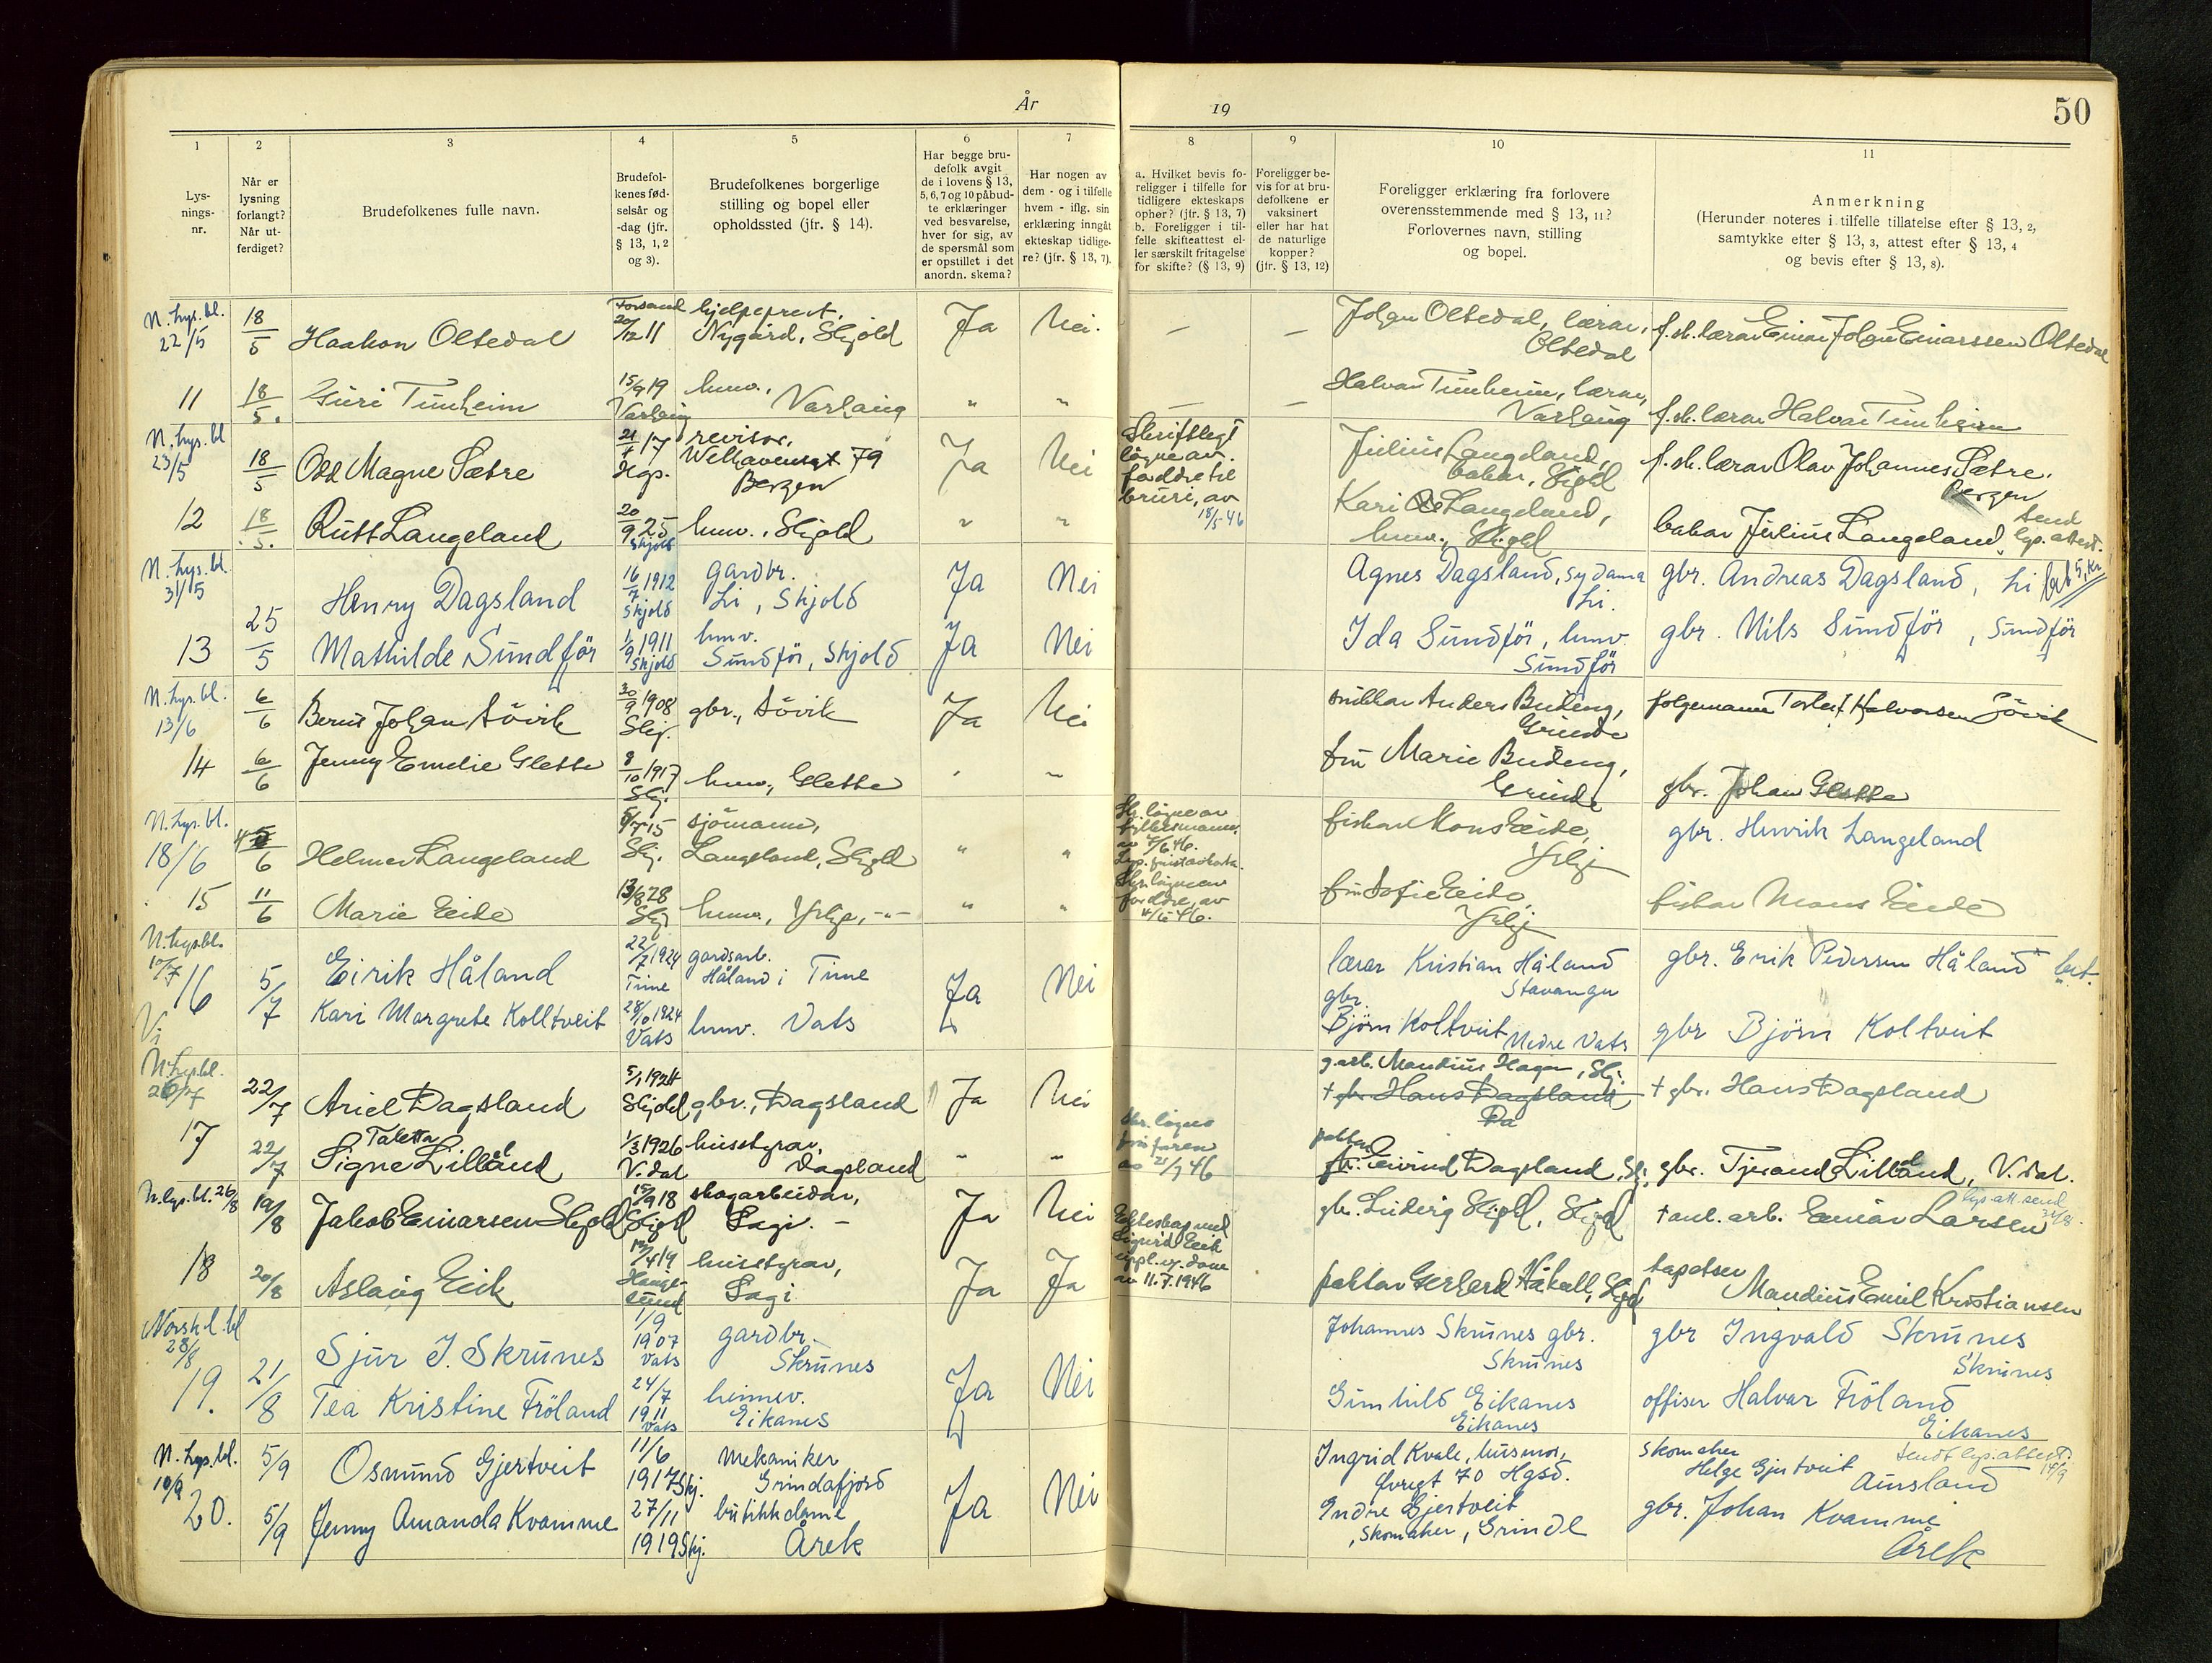 År
19
50
1
2
3
4
5
6
7
8
9
10
11
Lys-
nings-
nr.
Når er
lysning
forlangt?
Når ut-
ferdiget?
Brudefolkenes fulle navn.
Brudefol-
kenes fød-
selsår og
-dag (jfr.
§ 13, 1, 2
og 3).
Brudefolkenes borgerlige
stilling og bopel eller
opholdssted (jfr. § 14).
Har begge bru-
defolk avgit
de i lovens § 13,
5, 6, 7 og 10 påbud-
te erklæringer
ved besvarelse,
hver for sig, av
de spørsmål som
er opstillet i det
anordn. skema?
Har nogen av
dem - og i tilfelle
hvem - iflg. sin
erklæring inngåt
ekteskap tidlige-
re? (jfr. § 13, 7).
a. Hvilket bevis fo-
religger i tilfelle for
tidligere ekteskaps
ophør? (jfr. § 13, 7)
b. Foreligger i til-
felle skifteattest el-
ler særskilt fritagelse
for skifte? (§ 13, 9)
Foreligger be-
vis for at bru-
defolkene er
vaksinert
eller har hat
de naturlige
kopper?
(jfr. § 13, 12)
Foreligger erklæring fra forlovere
overensstemmende med § 13, 11?
Forlovernes navn, stilling
og bopel.
Anmerkning
(Herunder noteres i tilfelle tillatelse efter § 13, 2,
samtykke efter § 13, 3, attest efter § 13, 4
og bevis efter § 13, 8).
N. lys. bl.
22/5
18/5
Haakon Oltedal
Forsand
20/12 11
hjelpeprest,
Nygård, Skjold
Ja
Nei.
—
—
Johan Oltedal, lærar,
Oltedal
f. sk. lærar Einar Johan Einarssen Oltedal
11
18/5.
Guri Tunheim
15/9 19
Varhaug
hmv.,
Varhaug
"
"
—
—
Halvar Tunheim, lærar,
Varhaug
f. sk. lærar Halvar Tunheim
N. lys. bl
23/5
18/5
Odd Magne Sætre
17
Hgs.
revisor,
Welhavensgt 79
Bergen
Ja
Nei
Skriftlegt
løyve av
foreldre til
bruri, av
18/5 46
Julius Langeland,
bakar, Skjold
f. sk. lærar Olav Johannes Sætre.
Bergen
12
18/5.
Rutt Langeland
20/9 25
Skjold
hmv., Skjold
"
"
Kari Langeland,
hmv., Skjold
bakar Julius Langeland
Send
lys. attest.
N. lys. bl.
31/5
25/5
Henry Dagsland
16/7 1912
Skjold
gardbr.
Li, Skjold
Ja
Nei
Agnes Dagsland, sydama
Li.
gbr. Andreas Dagsland, Li
13
Mathilde Sundför
1/9 1911
Skjold
hmv.
Sundför, Skjold
Ja
Nei
Ida Sundför, hmv.
Sundför
gbr. Nils Sundför, Sundför
N. lys. bl.
13/6
6/6
Berni Johan Sövik
30/9 1908
Skj.
gbr., Sövik
Ja
Nei
snikkar Anders Budeng,
Grinde
folgemann Torleif Halvorsen Sövik
14
6/6
Jenny Emelie Glette
8/10 1917
Skj.
hmv., Glette
"
"
fru Marie Budeng,
Grinde
gbr. Johan Glette
N. lys. bl.
18/6
Helmer Langeland
5/7 15
Skj.
sjömann,
Langeland, Skjold
"
"
Sk. løyve av
fylkesmann
av 7/6 46.
fiskar Mons Eide,
gbr. Henrik Langeland
15
11/6
Marie Eide
13/8 28
Skj
hmv.,
"
"
Skr. løyve av
foreldre, av
11/6 46.
fru Sofie Eide,
fiskar Mons Eide
N. lys. bl.
10/7
16
5/7
Eirik Håland
22/7 1924
Time
gardsarb.
Håland i Time
Ja
Nei
lærar Kristian Håland
Stavanger
gbr. Erik Pedersen Håland
Kari Margrete Kolltveit
28/10 1924
Vats
hmv. Vats
gbr.
Björn Koltveit Nedre Vats
gbr Björn Koltveit
N. lys. bl.
26/7
22/7
Ariel Dagsland
5/1 1924
Skjold
gbr., Dagsland
Ja
Nei
g.arb. Mandius Hagen, Skj.
† gbr. Hans Dagsland
Da
† gbr. Hans Dagsland
17
22/7
Taletta
Signe Lilland
1/3 1926
V. dal
husstyrar,
Dagsland
"
"
Skr. løyve
frå faren
av 21/7 46
Eivind Dagsland, Skj.
gbr. Tjerand Lilland, V. dal.
N. lys. bl. 26/8
19/8
Jakob Einarsen Skjold
15/9 18
Skjold
skogarbeidar,
Sagi. -
Ja
Nei
gbr. Ludvig Skjold, Skjold
† anl. arb. Einar Larsen
lys. att. send
18
20/8
Aslaug Eik
419
Hauge-
sund
husstyrar,
Sagi
Ja
Ja
Ekteskap med
Sigurd Eik
oppl. ved dom
av 11.7.1946
faktor Gerhard Håkoll, Skjold
tapetser
Mandius Emil Kristiansen
Norsk l. bl
28/8
19.
21/8
Sjur I. Skrunes
1/9
1907
Vats
gardbr.
Skrunes
Ja
Nei
Johannes Skrunes gbr.
Skrunes
gbr Ingvald Skrunes
Skrunes
Tea Kristine Fröland
24/7
1911
Vats
heimev.
Eikanes
Gunhild Eikanes
Eikanes
offiser Halvar Fröland
Eikanes
N. lys. bl.
10/9
5/9
Osmund Gjertveit
11/6
1917 Skj.
Mekaniker
Grindafjord
Ja
Nei
Ingrid Kvale, husmor,
Øvregt 70 Hgsd.
skomaker
Helge Gjertveit
Aursland
Sendt lys. attest.
14/9
20.
5/9
Jenny Amanda Kvamme
27/11
1919 Skj.
butikkdame
Årek
Indre Gjertveit
, skomaker, Grinde
gbr. Johan Kvamme
Årek